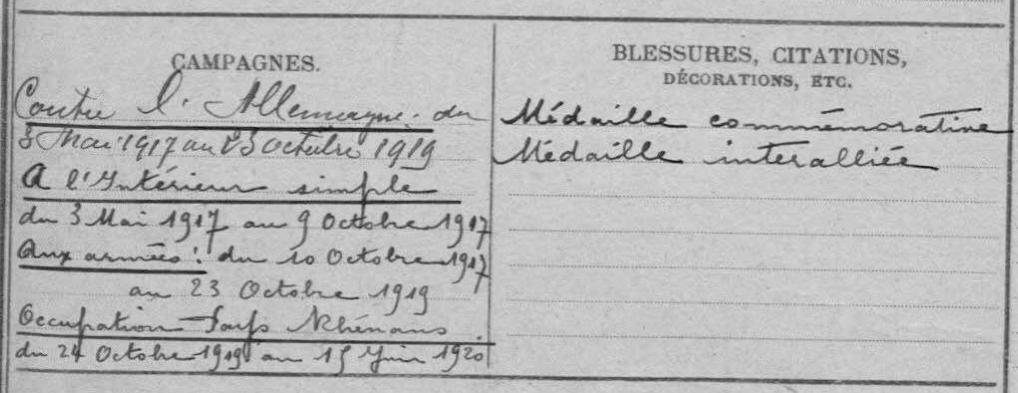 CAMPAGNES.
Contre l'Allemagne. du
3 Mai 1917 au 23 octobre 1919
A l'Intérieur simple
du 3 Mai 1917 au 9 Octobre 1917
Aux armées : du 10 Octobre 1917
au 23 Octobre 1919
Occupation Pays Rhénans
du 24 Octobre 1919 au 15 Juin 1920
BLESSURES, CITATIONS,
DÉCORATIONS, ETC.
Médaille commémorative
Médaille interalliée